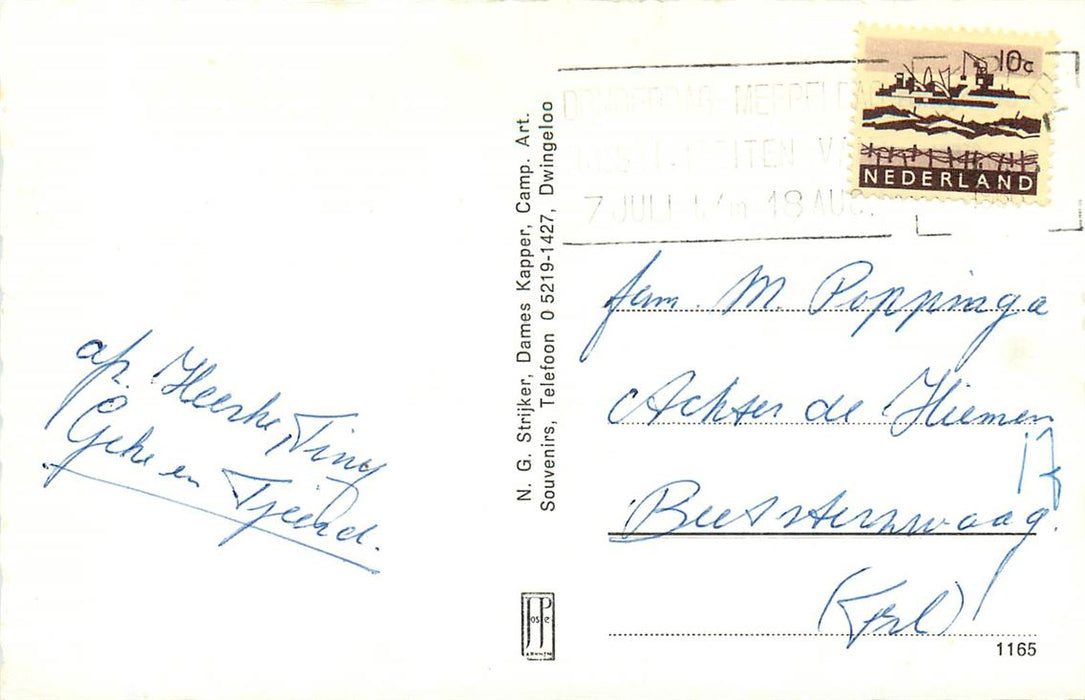 ap. Heerke, Tiny
Geke en Tjeerd.
N. G. Strijker, Dames Kapper, Camp. Art.
Souvenirs, Telefoon 0 5219-1427, Dwingeloo
JosPe
ARNHEM
DONDERDAG-MEPPELDAG
7 JULI t/m 18 AUG.
10c
NEDERLAND
fam. M. Poppinga
Achter de Hiemen
17
Beetsterzwaag.
(Frl)
1165